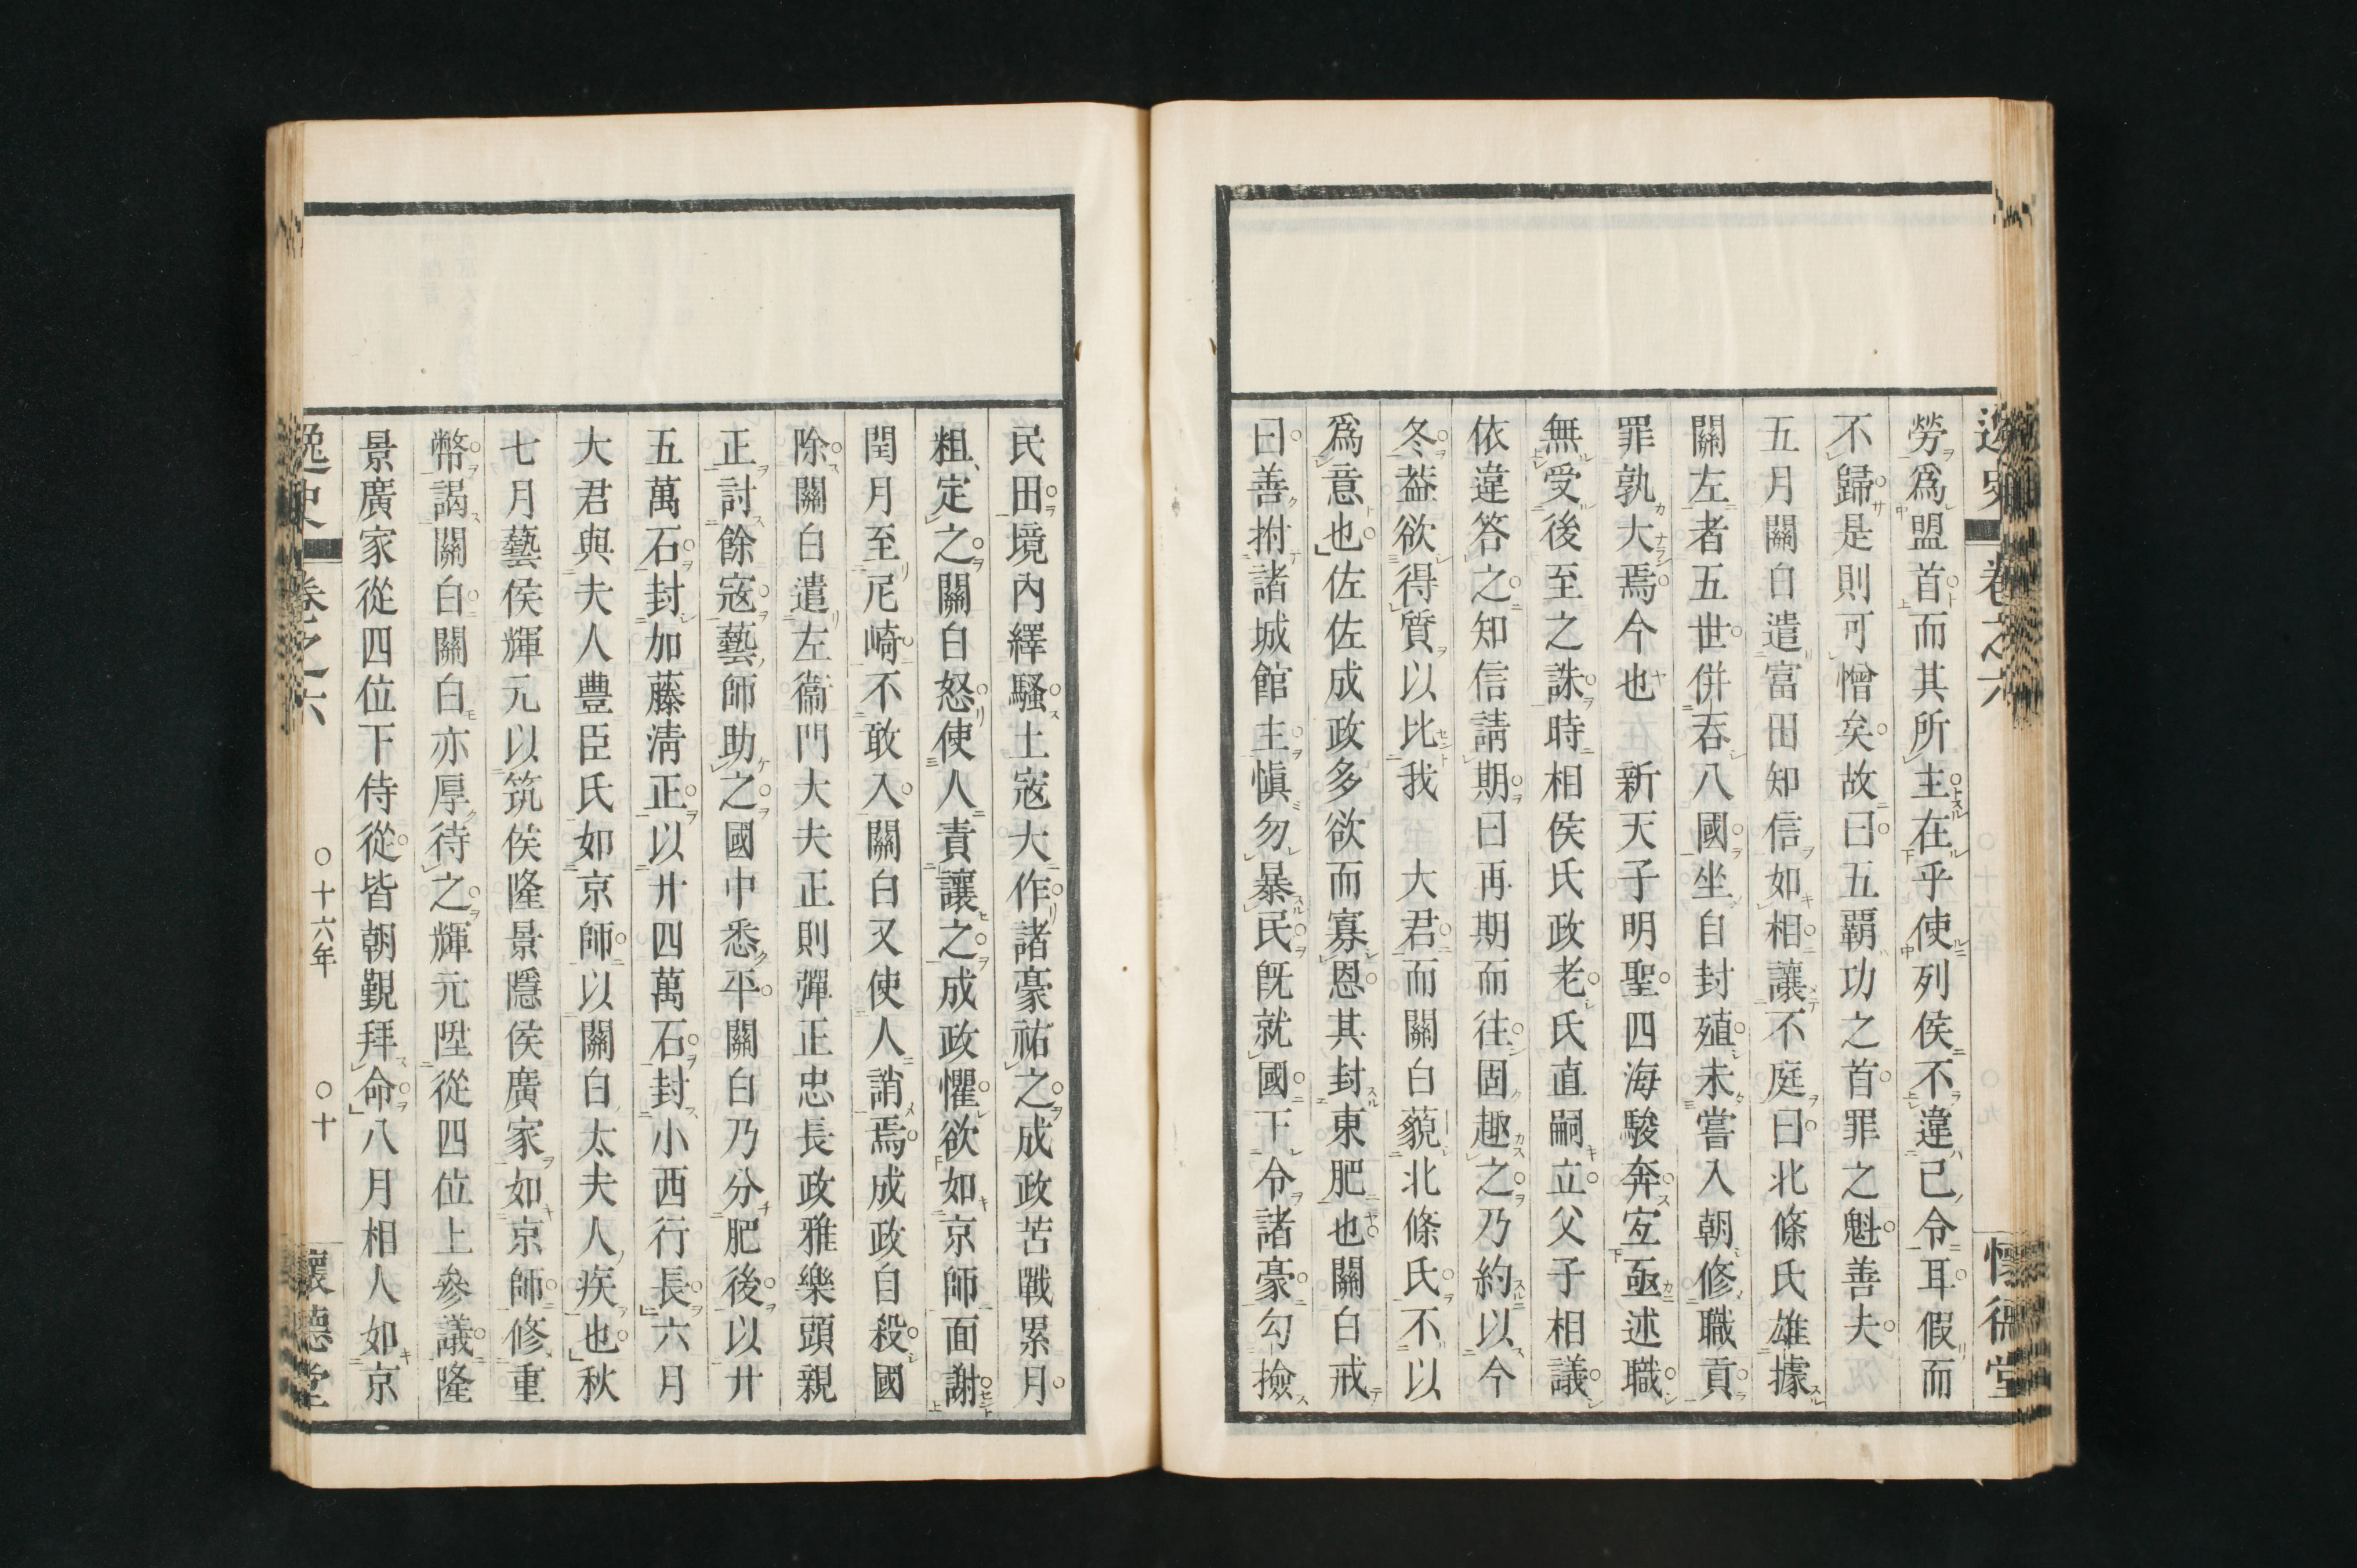 逸史 卷之六 懷德堂
勞爲盟首而其所主在乎使列侯不違己令耳假而
不歸是則可憎矣故曰五覇功之首罪之魁善夫
五月關白遣富田知信如相讓不庭曰北條氏雄據
關左者五世併吞八國坐自封殖未嘗入朝修職貢
罪孰大焉今也 新天子明聖四海駿奔宐亟述職
無受後至之誅時相侯氏政老氏直嗣立父子相議
依違答之知信請期曰再期而往固趣之乃約以今
冬葢欲得質以比我 大君而關白藐北條氏不以
爲意也佐佐成政多欲而寡恩其封東肥也關白戒
曰善拊諸城館主愼勿暴民旣就國下令諸豪勾撿
民田境內繹騷土寇大作諸豪祐之成政苦戰累月
粗定之關白怒使人責讓之成政懼欲如京師面謝
閏月至尼崎不敢入關白又使人誚焉成政自殺國
除關白遣左衞門大夫正則彈正忠長政雅樂頭親
正討餘寇藝師助之國中悉平關白乃分肥後以廾
五萬石封加藤淸正以廾四萬石封小西行長六月
大君與夫人豐臣氏如京師以關白太夫人疾也秋
七月藝侯輝元以筑侯隆景隱侯廣家如京師修重
幣謁關白關白亦厚待之輝元陞從四位上參議隆
景廣家從四位下侍從皆朝覲拜命八月相人如京
逸史 卷之六 〇十六年 〇十 懷德堂